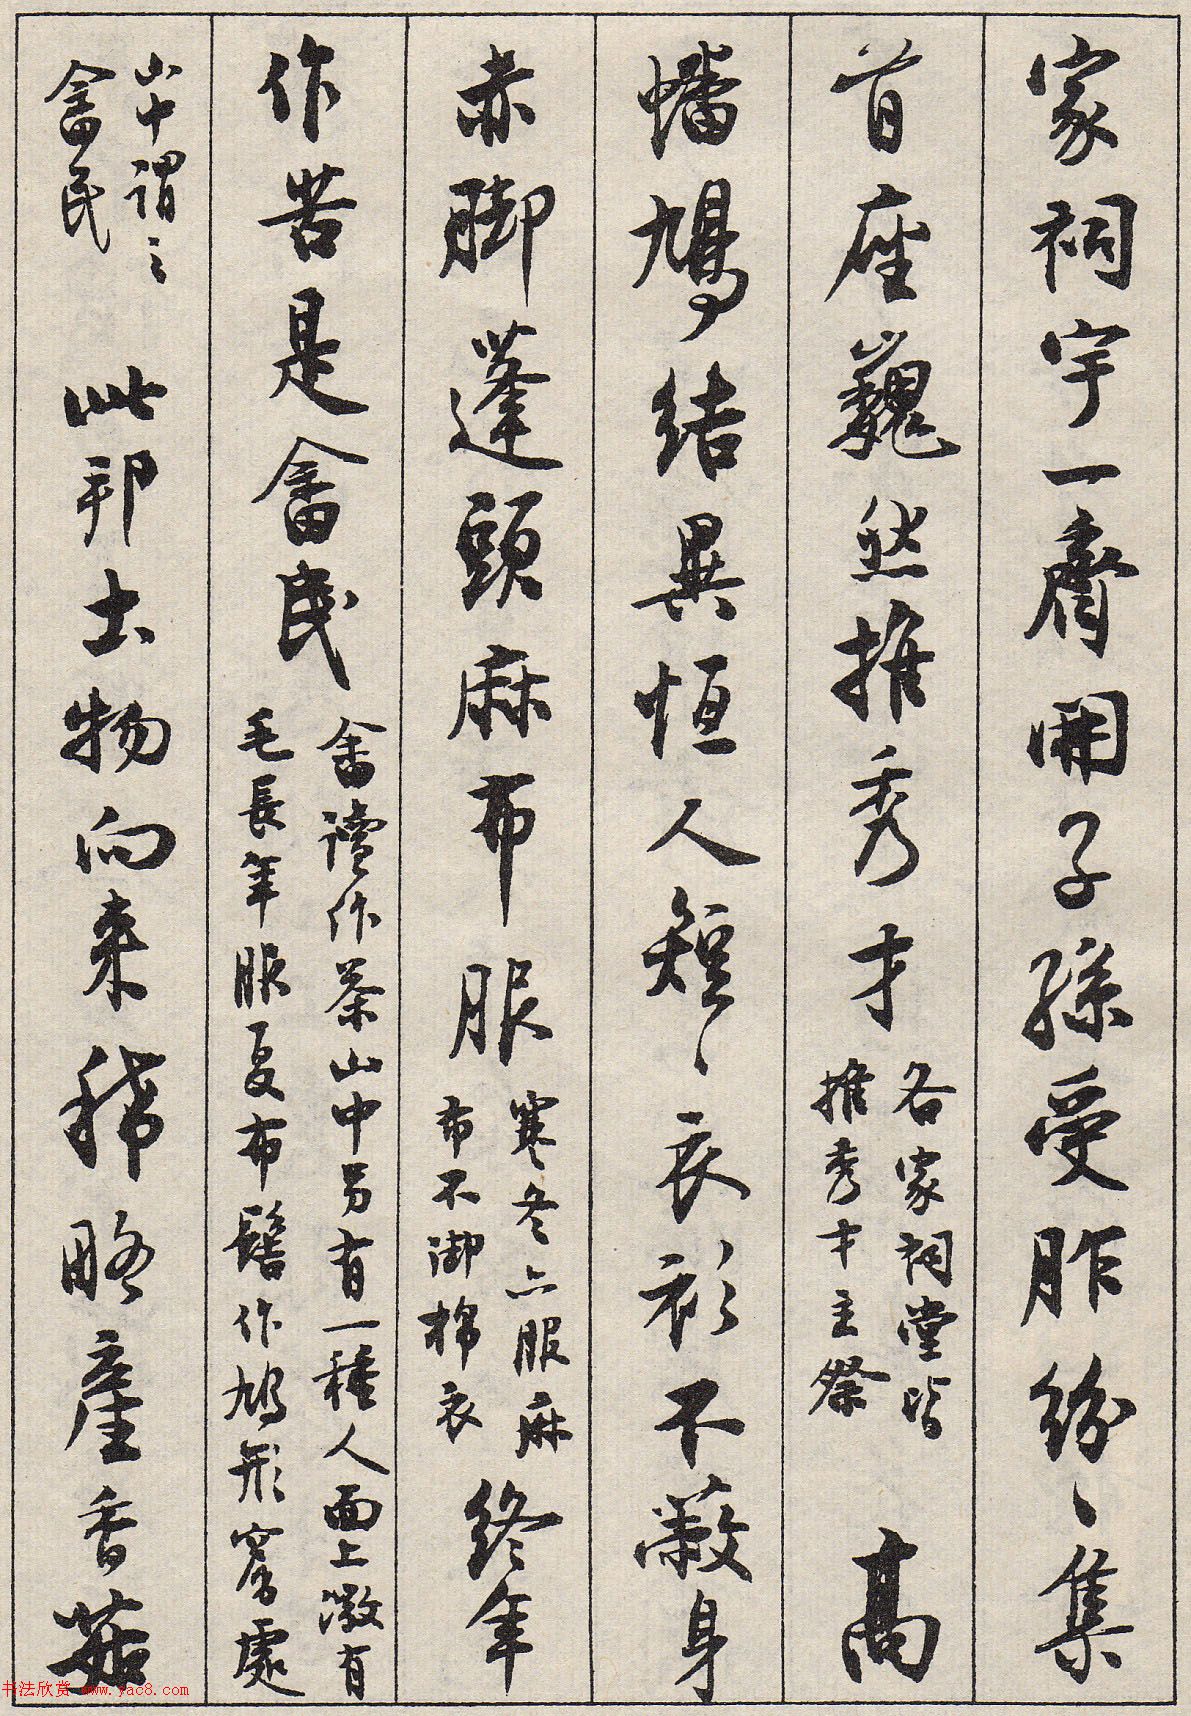 家祠宇一齊開子孫受胙紛、集
首座巍然推秀才
各家祠堂皆
推秀才主祭
高
蟠鳩結異恒人短、衣衫不蔽身
赤脚蓬頭麻布服
寒冬亦服麻
布不御棉衣
終年
作苦是畬民
畬讀作茶山中另有一種人面上微有
毛長年服夏布髻作鳩形窮處
山中謂之
畬民
此邦土物向来稀略產香菇
书法欣赏 www.yac8.com